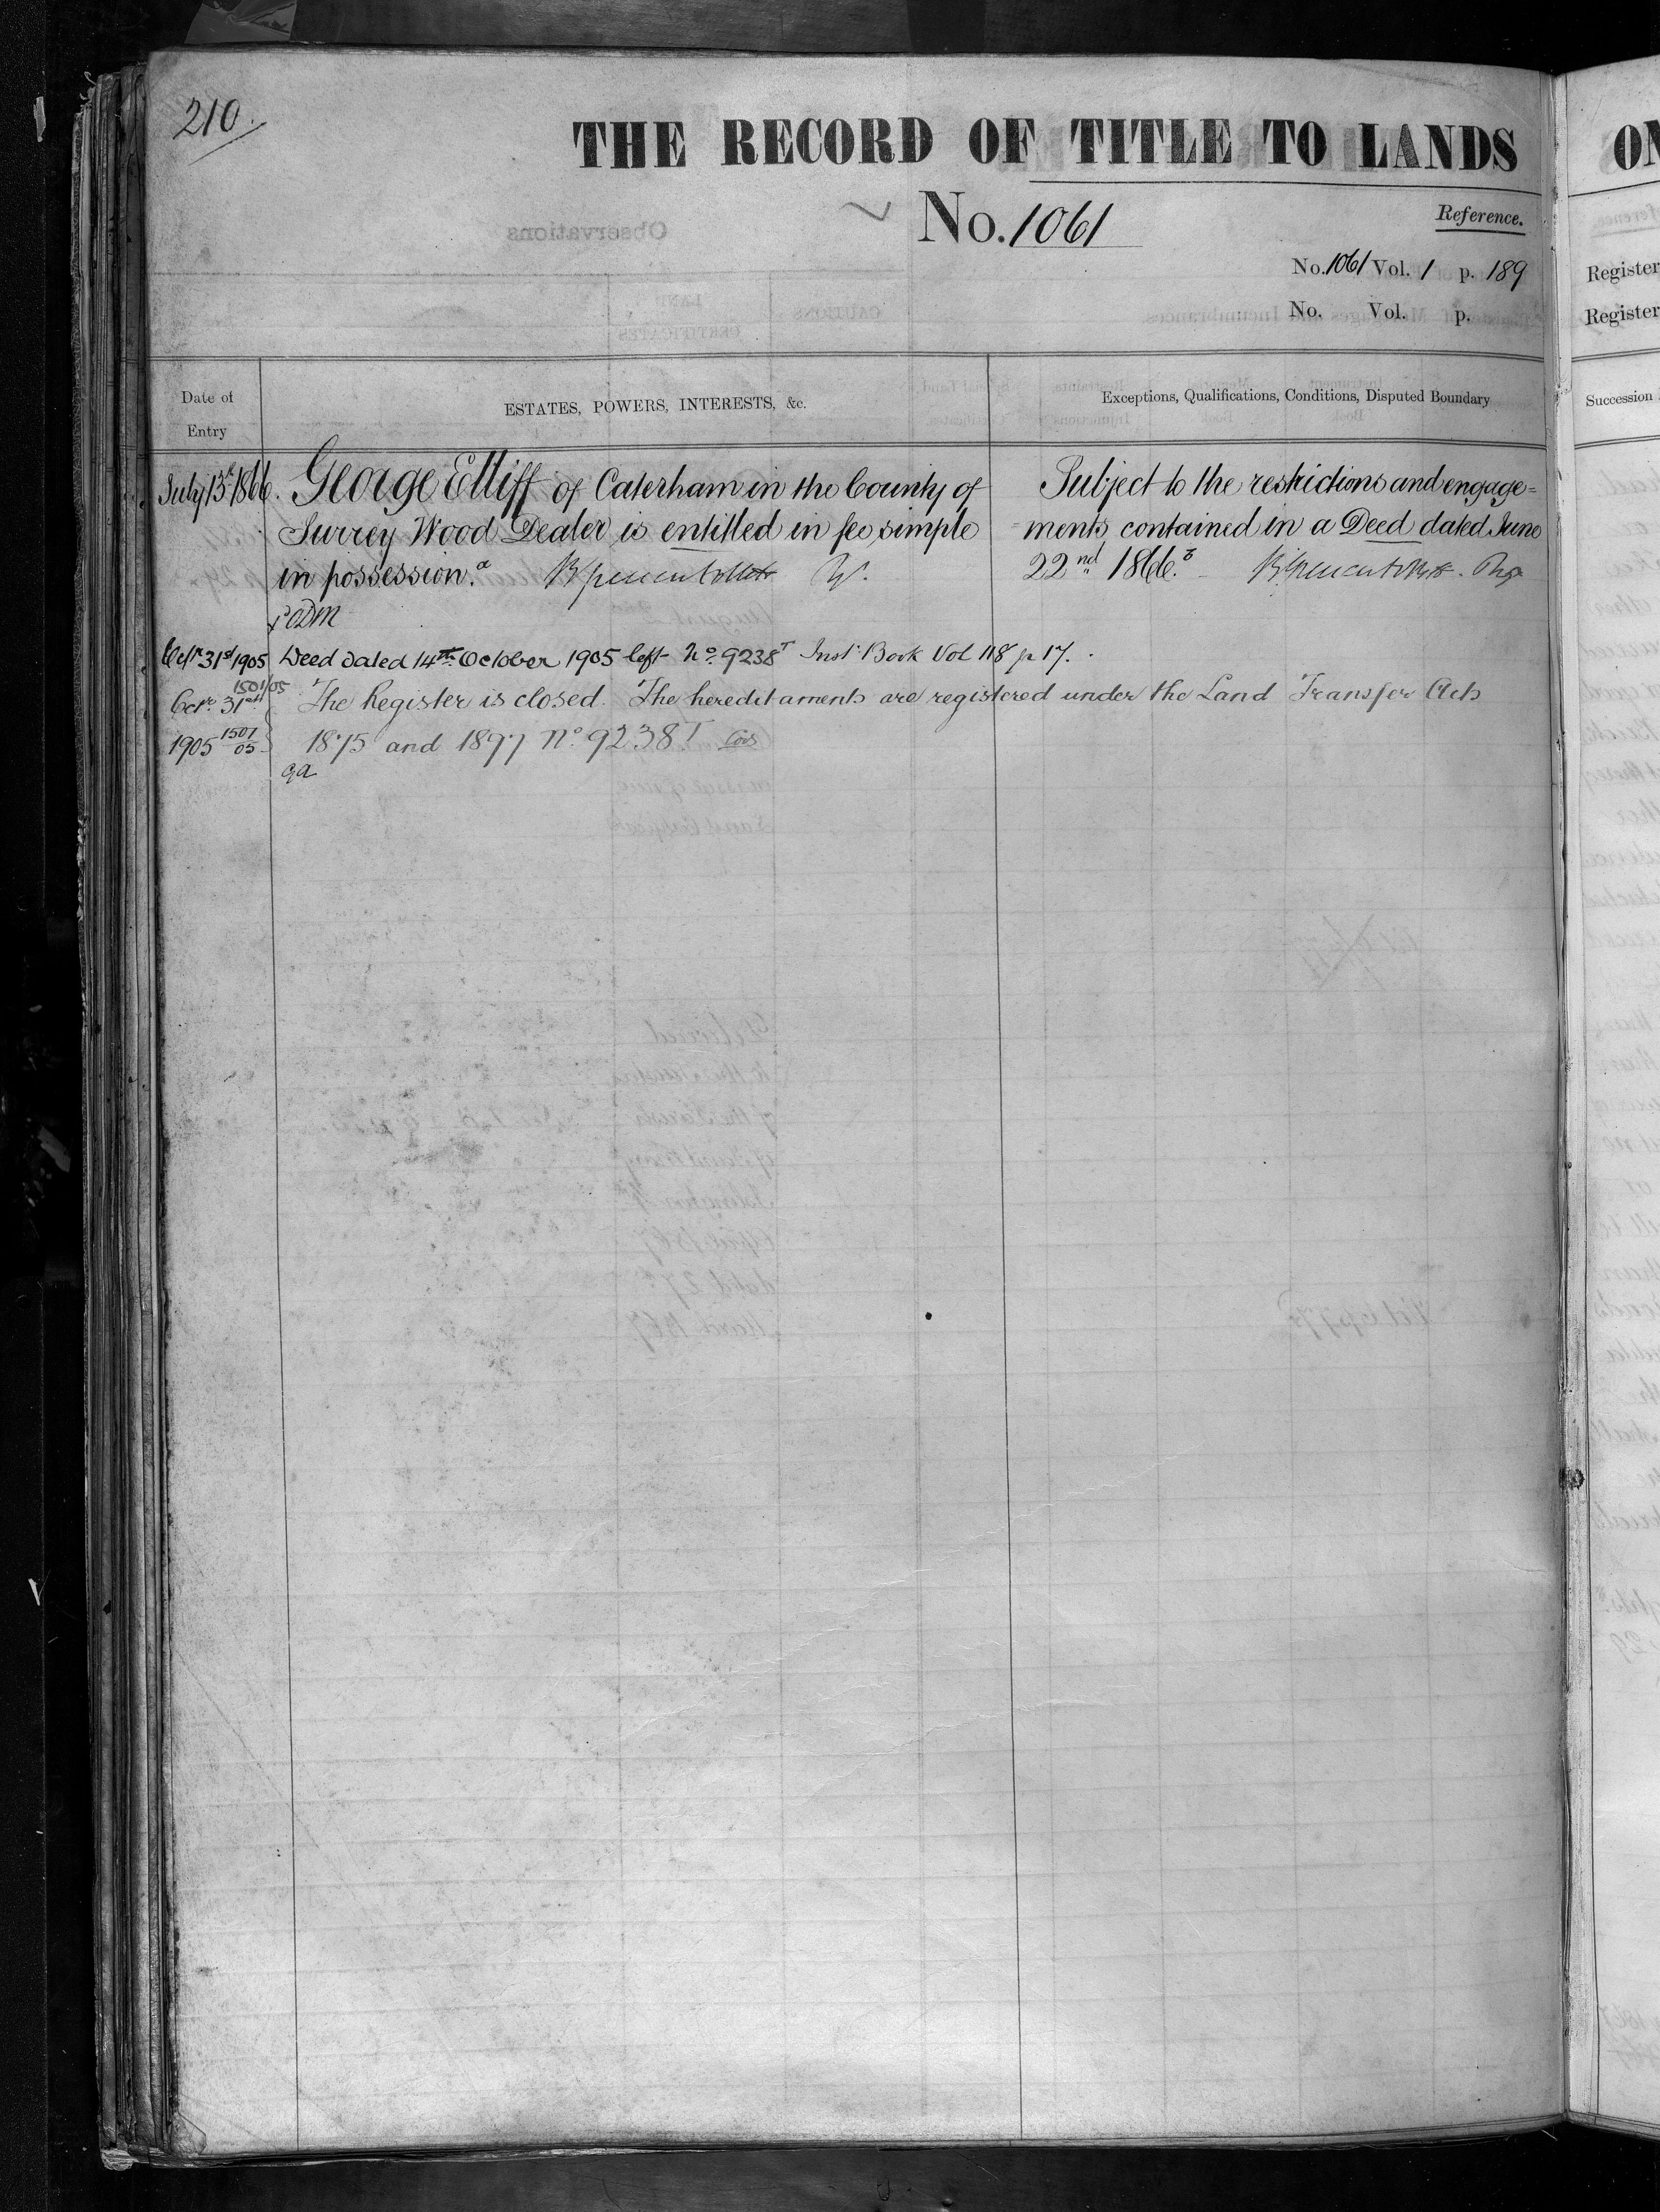 210.
THE RECORD OF TITLE TO LANDS
No. 1061
Reference.
No. 1061 Vol. 1 p. 189
No. Vol. p.
Date of Entry
ESTATES, POWERS, INTERESTS, &c.
Exceptions, Qualifications, Conditions, Disputed Boundary
July 13th 1866. George Elliff of Caterham in the County of
Surrey Wood Dealer is entitled in fee simple
in possession. a
Subject to the restrictions and engage=
=ments contained in a Deed dated June
22nd 1866.
Octr 31st 1905 Deed dated 14th October 1905 left No. 9238T Inst. Book Vol 118 p 17.
1501/05
Octr. 31st The Register is closed. The hereditaments are registered under the Land Transfer Acts
1905 1501/05 1875 and 1897 No. 9238T
ON
Register
Register
Succession